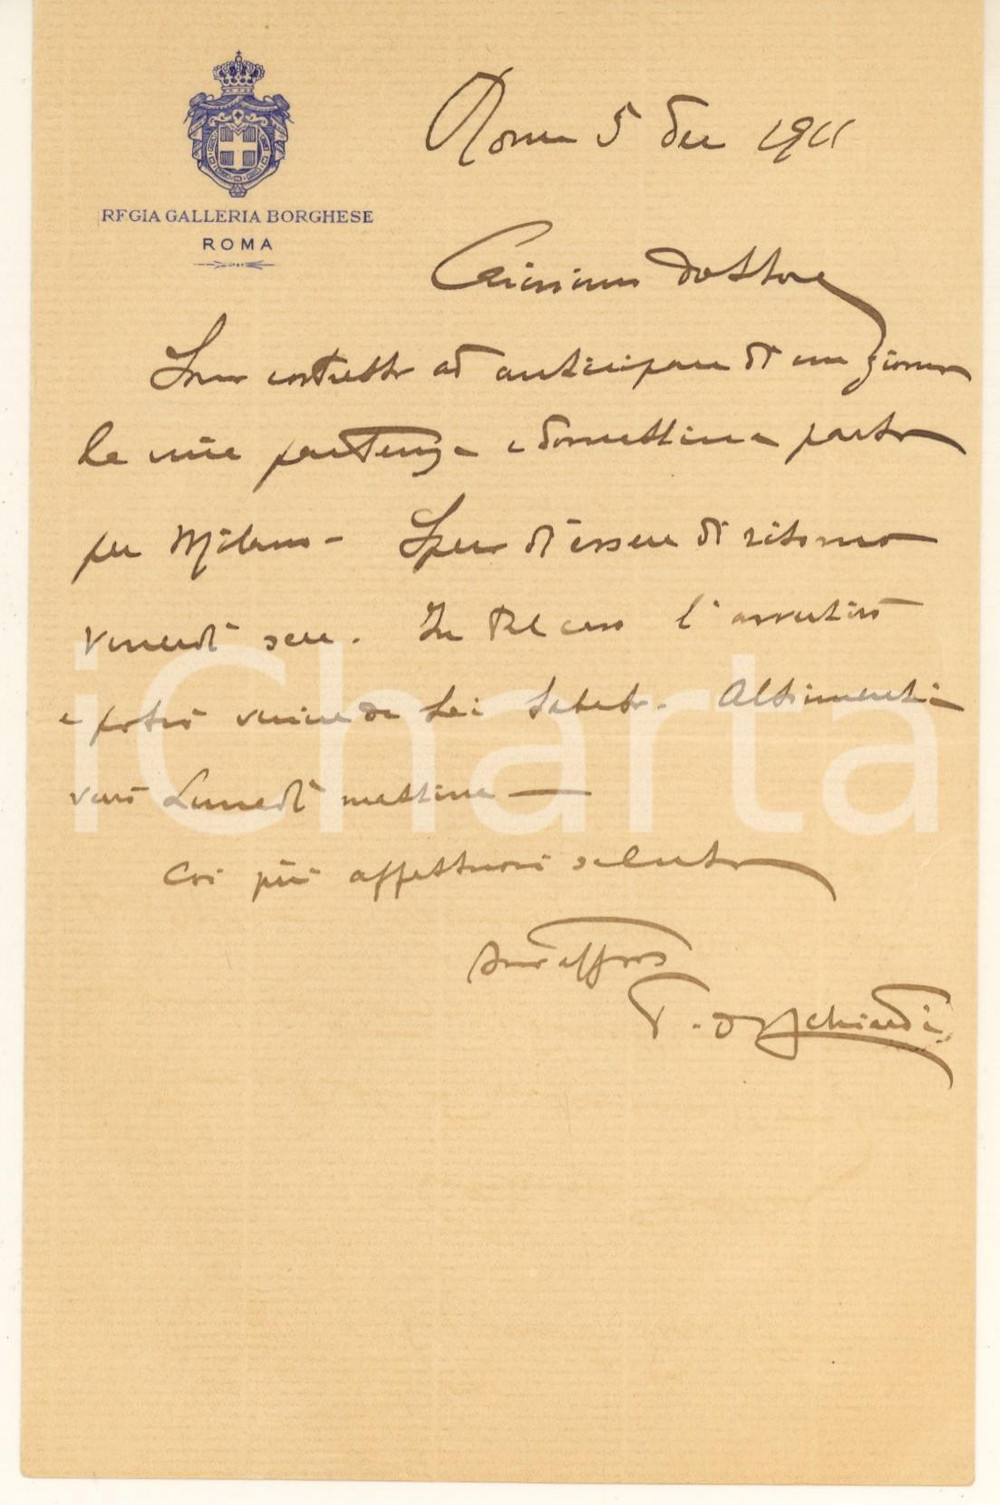 REGIA GALLERIA BORGHESE
ROMA
Roma 5 Dec 1911
Carissimo Dottore
Sono costretto ad anticipare di un giorno
la mia partenza e domattina parto
per Milano - Spero d'essere di ritorno
Venerdì sera. In tal caso l'avvertirò
e potrò venire da Lei Sabato. Altrimenti
verrò Lunedì mattina —
Coi più affettuosi saluti
Suo affmo
P. D'Achiardi
iCharta